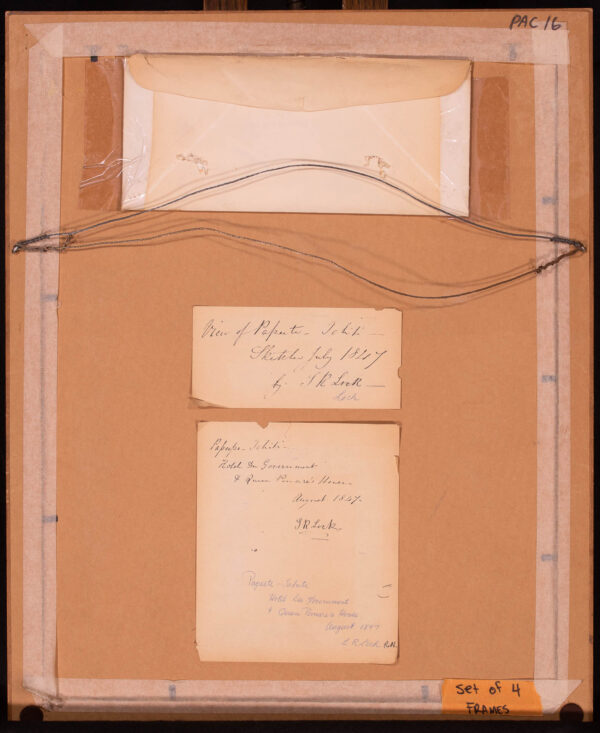 PAC 16
View of Papeete - Tahiti -
Sketched July 1847
by J R Lock -
Loch
Papeete - Tahiti -
Hotel du Government
& Queen Pomare's House
August 1847.
J R Lock
Papeete - Tahiti
Hotel du Government
& Queen Pomare's House
August 1847
Set of 4
FRAMES